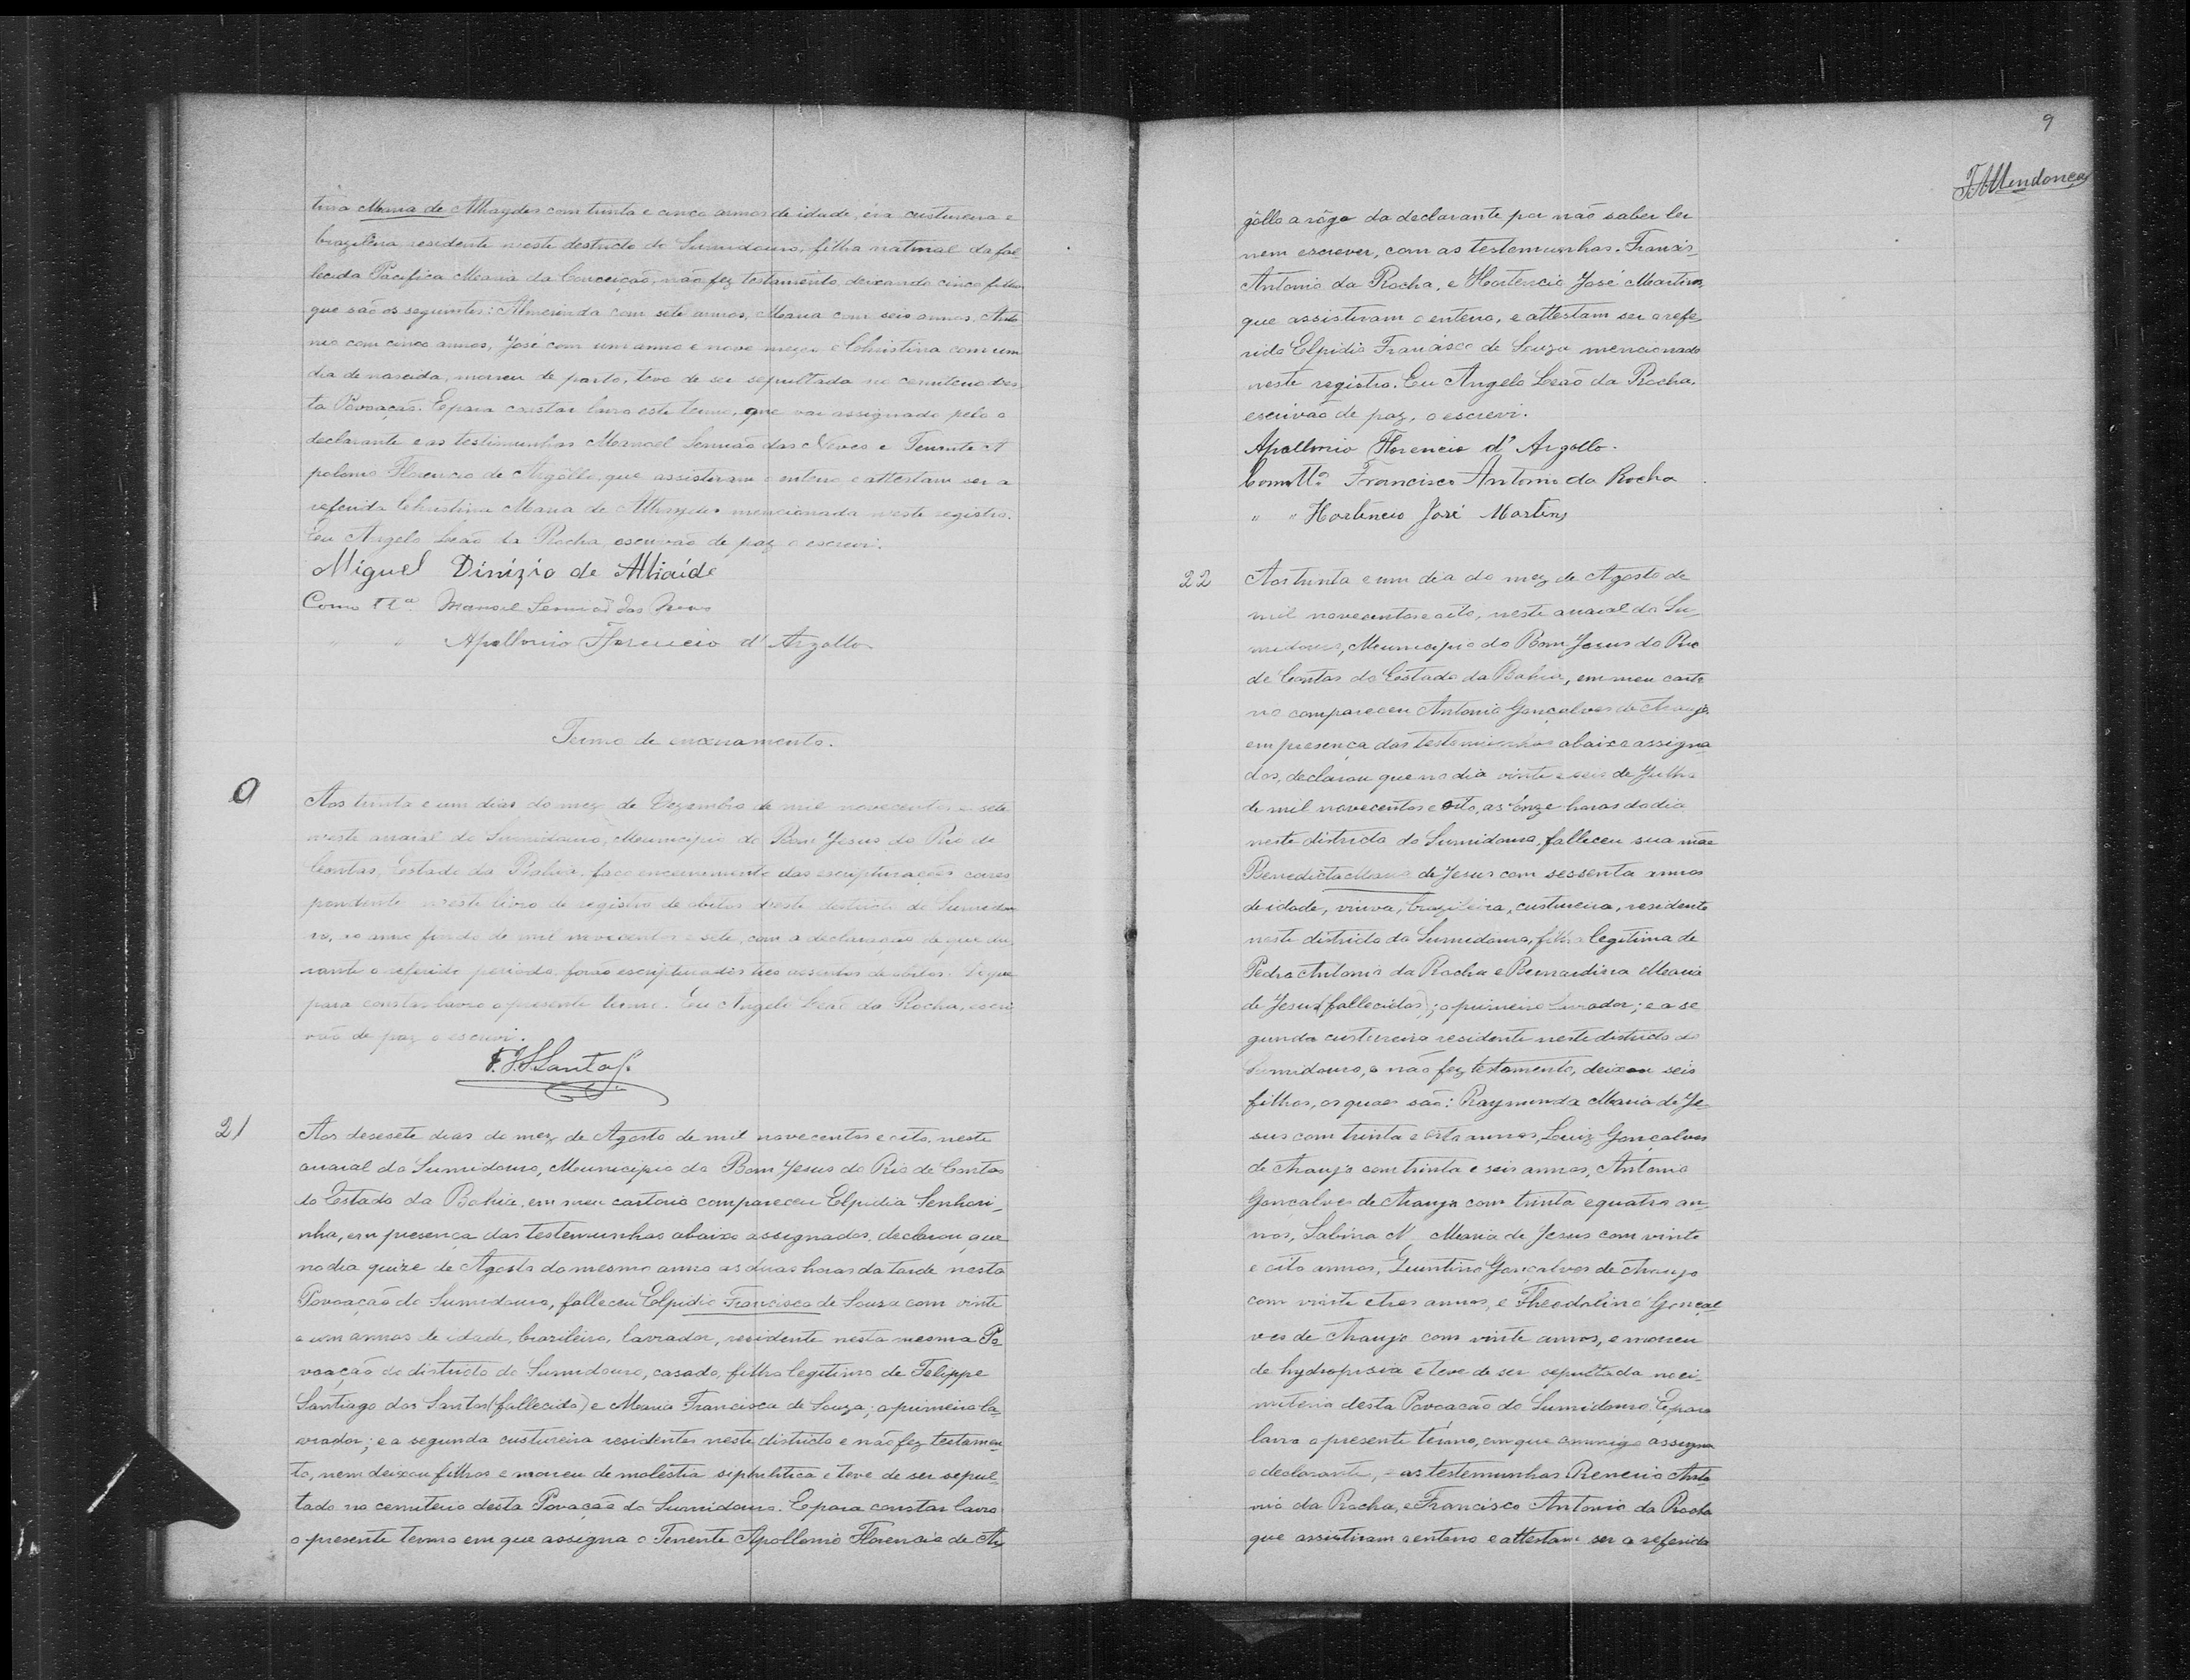 tina Maria de Athaydes com trinta e cinco annos de idade, éra custureira e
brazileira, residente neste destricto do Sumidouro, filha natural da fal
lecida Pacifica Maria da Conceição, não fez testamento, deixando cinco filhos
que são os seguintes: Almerinda com sete annos, Maria com seis annos, Anto
nio com cinco annos, José com um anno e nove mezes e Christina com um
dia de nascida, morreu de parto, teve de ser sepultada no cemiterio des
ta Povoação. E para constar lavro este termo, que vai assignado pelo o
declarante e as testimunhas Manoel Semião das Neves e Tenente A
polonio Florencio de Argôllo, que assistiram o enterro e attestam ser a
referida Christina Maria de Athaydes mencionada neste registro.
Eu Angelo Leão da Rocha, escrivão de paz o escrevi.
Miguel Dinizio de Athaide
Como Ttª Manoel Semião das Neves
" " Apollonio Florencio d' Argollo
Termo de encerramento.
Aos trinta e um dias do mez de Dezembro de mil novecentos e sete
neste arraial do Sumidouro, Municipio do Bom Jesus do Rio de
Contas, Estado da Bahia, faço encerramento das escripturações corres
pondente neste livro de registro de obitos deste districto do Sumidou
ro, no anno findo de mil novecentos e sete, com a declaração de que du
rante o referido periodo forão escripturados tres assentos de obitos. Do que
para constar lavro o presente termo. Eu Angelo Leão da Rocha, escri
vão de paz o escrevi.
F. J. S. Santos.
21 Aos desesete dias do mez de Agosto de mil novecentos e oito, neste
arraial do Sumidouro, Municipio do Bom Jesus do Rio de Contas
do Estado da Bahia, em meu cartorio compareceu Elpidia Senhori_
nha, em presença das testemunhas abaixo assignados, declarou que
no dia quize de Agosto do mesmo anno as duas horas da tarde nesta
Povoação do Sumidouro, falleceu Elpidio Francisco de Sousa com vinte
e um annos de idade, brazileiro, lavrador, residente nesta mesma Po
voação do districto do Sumidouro, casado, filho legitimo de Felippe
Santiago dos Santos (fallecido) e Maria Francisca de Souza; o primeiro la
vrador; e a segunda custureira residentes neste districto e não fez testamen
to, nem deixou filhos e morreu de molestia siphilitica e teve de ser sepul
tado no cemiterio desta Povoação do Sumidouro. E para constar lavro
o presente termo em que assigna o Tenente Apollonio Florencio de Ar
9
JAMendonça
gôllo a rôgo da declarante por não saber ler
nem escrever, com as testemunhas. Francis_
Antonio da Rocha, e Hortencio José Martins
que assistiram o enterro, e attestam ser o refe
rido Elpidio Francisco de Souza mencionado
neste registro. Eu Angelo Leão da Rocha.
escrivão de paz, o escrevi.
Apollonio Florencio d' Argollo.
Como Ttª Francisco Antonio da Rocha
" " Hortencio José Martins
22 Aos trinta e um dia do mez de Agosto de
mil novecentos e oito, neste arraial do Su_
midouro, Municipio do Bom Jesus do Rio
de Contas do Estado da Bahia, em meu carto
rio compareceu Antonio Gonçalves de Araujo
em presença das testemunhas abaixo assigna
dos, declarou que no dia vinte e seis de Julho
de mil novecentos e oito, as ônze horas do dia
neste districto do Sumidouro, falleceu sua mãe
Benedicta Maria de Jesus com sessenta annos
de idade, viuva, brazileira, custureira, residente
neste districto do Sumidouro, filha legitima de
Pedro Antonio da Rocha e Bernardina Maria
de Jesus (fallecidos); o primeiro lavrador; e a se
gunda custureira residente neste districto do
Sumidouro, e não fez testamento, deixou seis
filhos, os quaes são: Raymunda Maria de Je
sus com trinta e oito annos, Luiz Gonçalves
de Araujo com trinta e seis annos, Antonio
Goncalves de Araujo com trinta e quatro an_
nos, Sabina M Maria de Jesus com vinte
e oito annos, Quintino Gonçalves de Araujo
com vinte e tres annos, e Theodolino Gonçal
ves de Araujo com vinte annos, e morreu
de hydropisia e teve de ser sepultada no ci_
miterio desta Povoacão do Sumidouro. E para
lavro o presente termo, em que commigo assigna
o declarante, - as testemunhas Renerio Anto
nio da Rocha, e Francisco Antonio da Rocha
que assistiram o enterro e attestam ser a referida